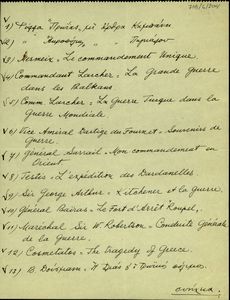 718/6/204
1) Ρίζτα "Πρίγκ, μὲ
2) " " "
3) Mermeix = Le commandement Unique.
4) Commandant Larcher = La Grande Guerre
dans les Balkans
5) Comm. Larcher = La Guerre Turque dans la
Guerre Mondiale
6) Vice Amiral Dartige du Fournet = Souvenirs de
Guerre
7) Général Sarrail = Mon commandement en
Orient
8) Testis = L'expédition des Dardanelles
9) Sir George Arthur = Kitchener et la Guerre.
10) Général Bairas = Le Fort d'Arrêt "Roupel".
11) Maréchal Sir W. Robertson = Conduite Générale
de la Guerre.
12) Cosmetatos = The Tragedy of Greece.
13) Β.